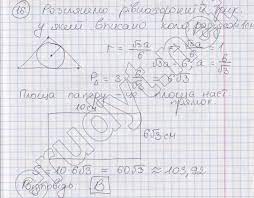 16) Розглянемо рівносторонній трик.
у який вписано коло радіусом 1 см
r = √3a/6 √3a/6 = 1
√3a = 6 a = 6/√3
P₃ = 3 × 6/√3 = 6√3
Площа паперу це площа наст
прямок.
6√3 см
10
S = 10·6√3 = 60√3 ≈ 103,92
Відповідь: В